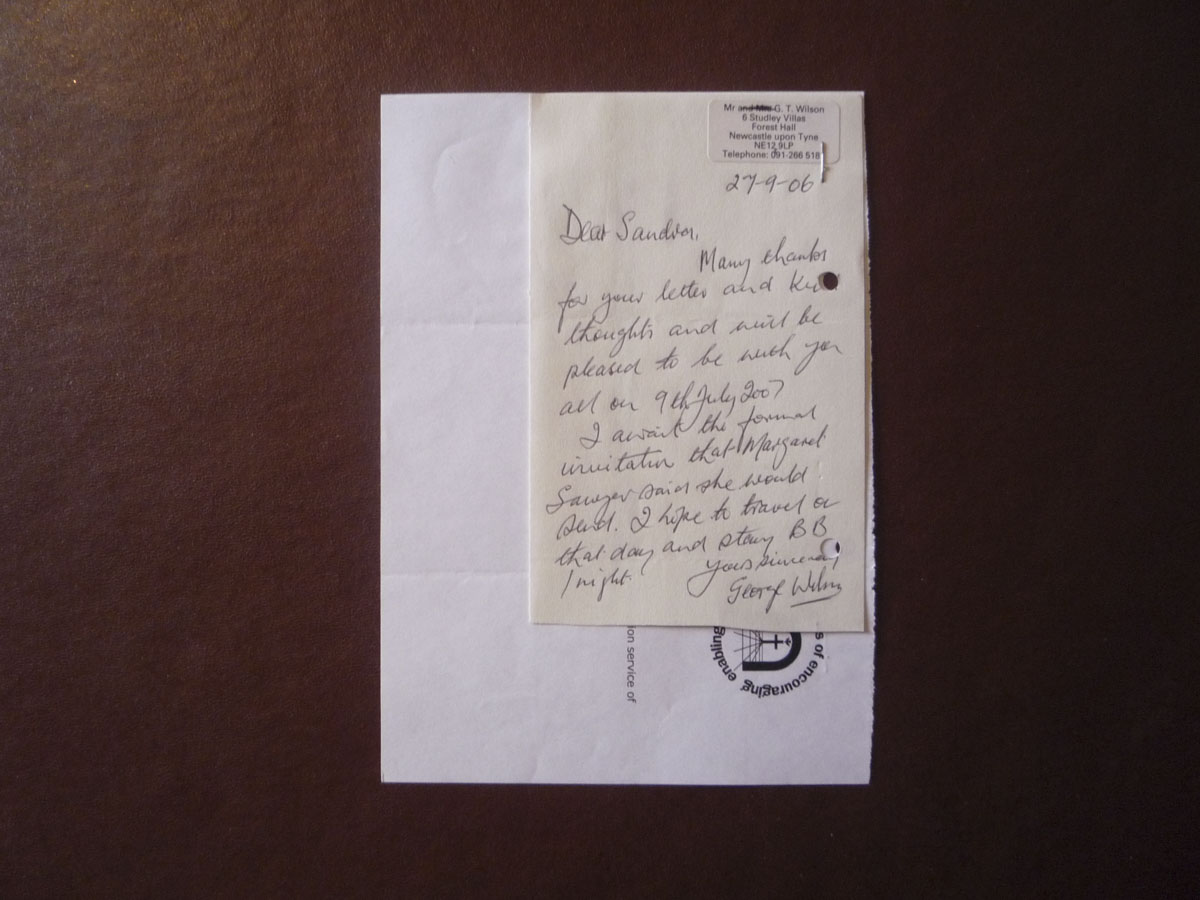 Mr and Mrs G. T. Wilson
6 Studley Villas
Forest Hall
Newcastle upon Tyne
NE12 9LP
Telephone: 091-266 518
27-9-06
Dear Sandra,
Many thanks
for your letter and
thoughts and will be
pleased to be with you
all on 9th July 2007
I await the formal
invitation that Margaret
Sawyer said she would
send. I hope to travel on
that day and stay BB
1 night.
Yours sincerely
George Wilson
ion service of
s of encouraging enabling